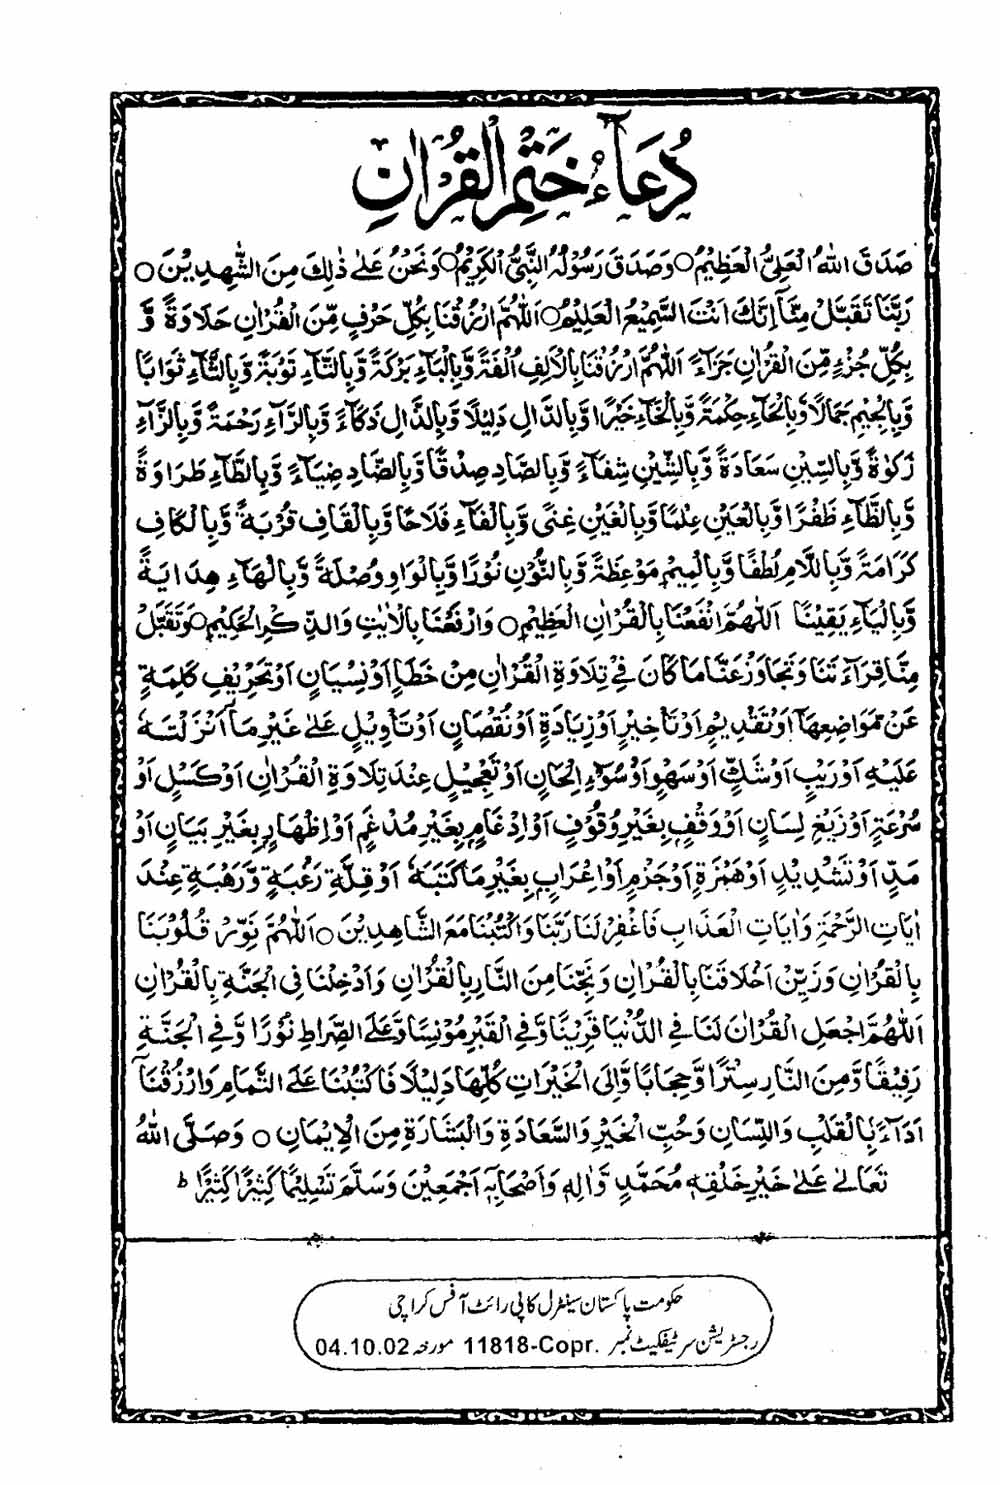 دُعَآءُ خَتْمِ الْقُرْاٰنِ
صَدَقَ اللّٰهُ الْعَلِيُّ الْعَظِيْمُ○ وَصَدَقَ رَسُوْلُهُ النَّبِيُّ الْكَرِيْمُ○ وَنَحْنُ عَلٰى ذٰلِكَ مِنَ الشّٰهِدِيْنَ○
رَبَّنَا تَقَبَّلْ مِنَّآ اِنَّكَ اَنْتَ السَّمِيْعُ الْعَلِيْمُ○ اَللّٰهُمَّ ارْزُقْنَا بِكُلِّ حَرْفٍ مِّنَ الْقُرْاٰنِ حَلَاوَةً وَّ
بِكُلِّ جُزْءٍ مِّنَ الْقُرْاٰنِ جَزَآءً اَللّٰهُمَّ ارْزُقْنَا بِالْاَلِفِ اُلْفَةً وَّبِالْبَآءِ بَرَكَةً وَّبِالتَّآءِ تَوْبَةً وَّبِالثَّآءِ ثَوَابًا
وَّبِالْجِيْمِ جَمَالًا وَّبِالْحَآءِ حِكْمَةً وَّبِالْخَآءِ خَيْرًا وَّبِالدَّالِ دَلِيْلًا وَّبِالذَّالِ ذَكَآءً وَّبِالرَّآءِ رَحْمَةً وَّبِالزَّآءِ
زَكٰوةً وَّبِالسِّيْنِ سَعَادَةً وَّبِالشِّيْنِ شِفَآءً وَّبِالصَّادِ صِدْقًا وَّبِالضَّادِ ضِيَآءً وَّبِالطَّآءِ طَرَاوَةً
وَّبِالظَّآءِ ظَفَرًا وَّبِالْعَيْنِ عِلْمًا وَّبِالْغَيْنِ غِنًى وَّبِالْفَآءِ فَلَاحًا وَّبِالْقَافِ قُرْبَةً وَّبِالْكَافِ
كَرَامَةً وَّبِاللَّامِ لُطْفًا وَّبِالْمِيْمِ مَوْعِظَةً وَّبِالنُّوْنِ نُوْرًا وَّبِالْوَاوِ وُصْلَةً وَّبِالْهَآءِ هِدَايَةً
وَّبِالْيَآءِ يَقِيْنًا اَللّٰهُمَّ انْفَعْنَا بِالْقُرْاٰنِ الْعَظِيْمِ○ وَارْفَعْنَا بِالْاٰيٰتِ وَالذِّكْرِ الْحَكِيْمِ○ وَتَقَبَّلْ
مِنَّا قِرَآءَتَنَا وَتَجَاوَزْ عَنَّا مَا كَانَ فِيْ تِلَاوَةِ الْقُرْاٰنِ مِنْ خَطَأٍ اَوْ نِسْيَانٍ اَوْ تَحْرِيْفِ كَلِمَةٍ
عَنْ مَّوَاضِعِهَآ اَوْ تَقْدِيْمٍ اَوْ تَاْخِيْرٍ اَوْ زِيَادَةٍ اَوْ نُقْصَانٍ اَوْ تَاْوِيْلٍ عَلٰى غَيْرِ مَآ اَنْزَلْتَهٗ
عَلَيْهِ اَوْ رَيْبٍ اَوْ شَكٍّ اَوْ سَهْوٍ اَوْ سُوْٓءِ اِلْحَانٍ اَوْ تَعْجِيْلٍ عِنْدَ تِلَاوَةِ الْقُرْاٰنِ اَوْ كَسَلٍ اَوْ
سُرْعَةٍ اَوْ زَيْغِ لِسَانٍ اَوْ وَقْفٍ بِغَيْرِ وُقُوْفٍ اَوْ اِدْغَامٍ بِغَيْرِ مُدْغَمٍ اَوْ اِظْهَارٍ بِغَيْرِ بَيَانٍ اَوْ
مَدٍّ اَوْ تَشْدِيْدٍ اَوْ هَمْزَةٍ اَوْ جَزْمٍ اَوْ اِعْرَابٍ بِغَيْرِ مَا كَتَبَهٗ اَوْ قِلَّةِ رَغْبَةٍ وَّرَهْبَةٍ عِنْدَ
اٰيَاتِ الرَّحْمَةِ وَاٰيَاتِ الْعَذَابِ فَاغْفِرْ لَنَا رَبَّنَا وَاكْتُبْنَا مَعَ الشَّاهِدِيْنَ○ اَللّٰهُمَّ نَوِّرْ قُلُوْبَنَا
بِالْقُرْاٰنِ وَزَيِّنْ اَخْلَاقَنَا بِالْقُرْاٰنِ وَنَجِّنَا مِنَ النَّارِ بِالْقُرْاٰنِ وَاَدْخِلْنَا فِي الْجَنَّةِ بِالْقُرْاٰنِ
اَللّٰهُمَّ اجْعَلِ الْقُرْاٰنَ لَنَا فِي الدُّنْيَا قَرِيْنًا وَّفِي الْقَبْرِ مُوْنِسًا وَّعَلَى الصِّرَاطِ نُوْرًا وَّفِي الْجَنَّةِ
رَفِيْقًا وَّمِنَ النَّارِ سِتْرًا وَّحِجَابًا وَّاِلَى الْخَيْرَاتِ كُلِّهَا دَلِيْلًا فَاكْتُبْنَا عَلَى التَّمَامِ وَارْزُقْنَآ
اَدَآءً بِالْقَلْبِ وَاللِّسَانِ وَحُبِّ الْخَيْرِ وَالسَّعَادَةِ وَالْبَشَارَةِ مِنَ الْاِيْمَانِ○ وَصَلَّى اللّٰهُ
تَعَالٰى عَلٰى خَيْرِ خَلْقِهٖ مُحَمَّدٍ وَّاٰلِهٖ وَاَصْحَابِهٖٓ اَجْمَعِيْنَ وَسَلَّمَ تَسْلِيْمًا كَثِيْرًا كَثِيْرًا ط
حکومت پاکستان سینٹرل کاپی رائٹ آفس کراچی
رجسٹریشن سرٹیفکیٹ نمبر 11818-Copr. مورخہ 04.10.02